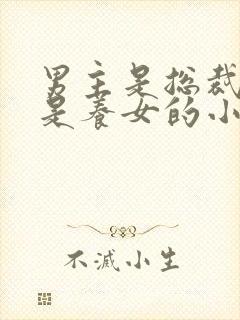 男主是总裁
是养女的小
不滅小生